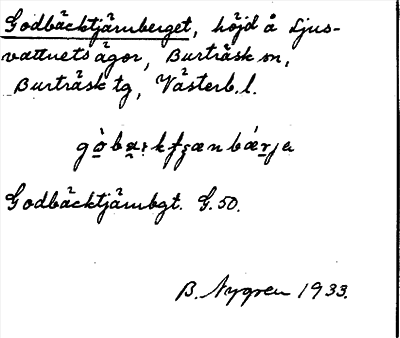 Godbäcktjärnberget, höjd å Ljus-
vattnets ägor, Burträsk sn,
Burträsk tg, Västerb. l.
Godbäcktjärnbgt. G. 50.
B. Nygren 1933.